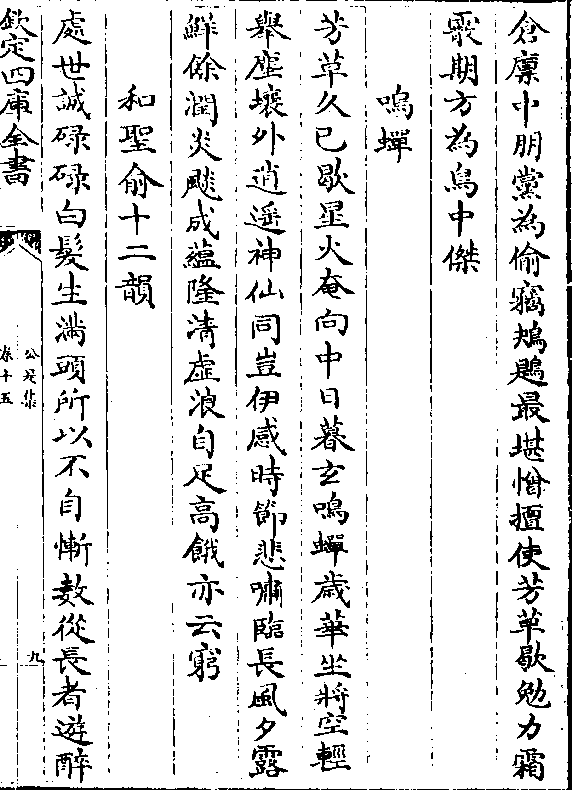 倉廩中朋黨為偷竊鴂鶗最堪憎擅使芳草歇勉力霜
霰期方為鳥中傑
鳴蟬
芳草久已歇星火奄向中日暮玄鳴蟬歲華坐將空輕
舉塵壤外逍遥神仙同豈伊感時節悲嘯臨長風夕露
鮮餘潤炎飈成蘊隆清虛浪自足高餓亦云窮
和聖俞十二韻
處世誠碌碌白髮生滿頭所以不自慚數從長者遊醉
欽定四庫全書
公是集
卷十五
九